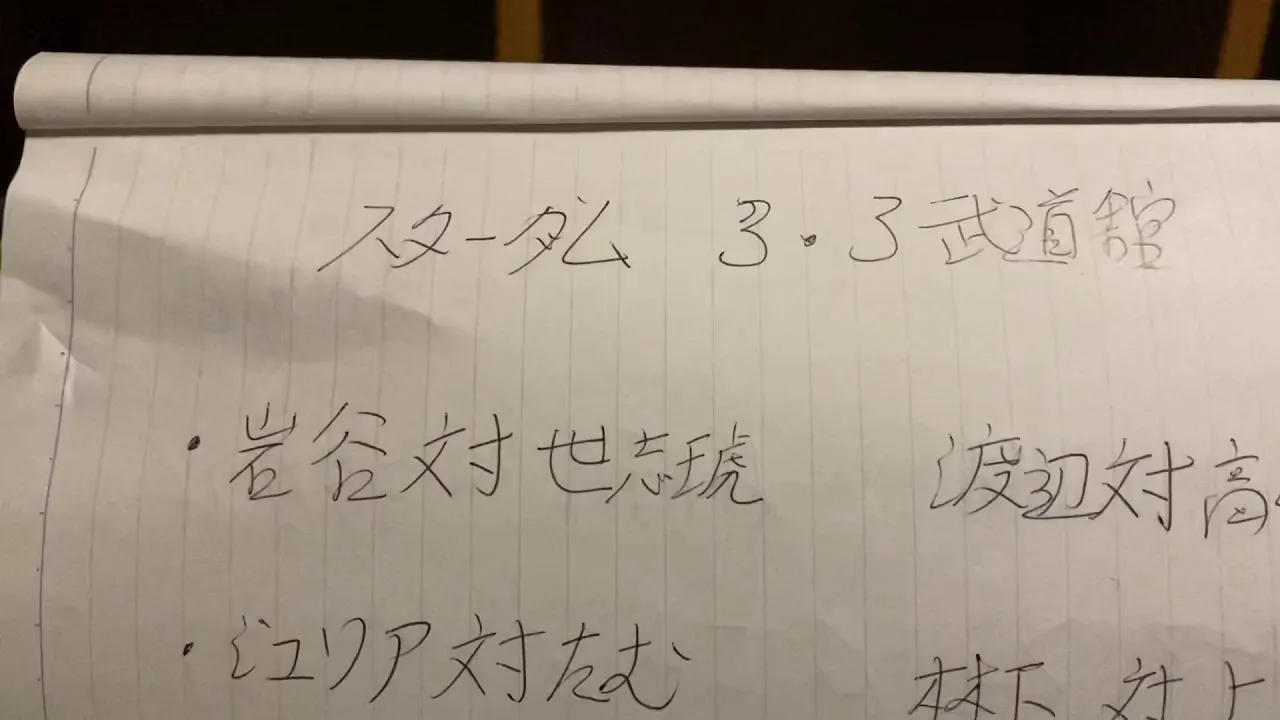 スターダム 3・3武道館
・岩谷対世志琥 渡辺対高
・江リア対たむ 林下対上